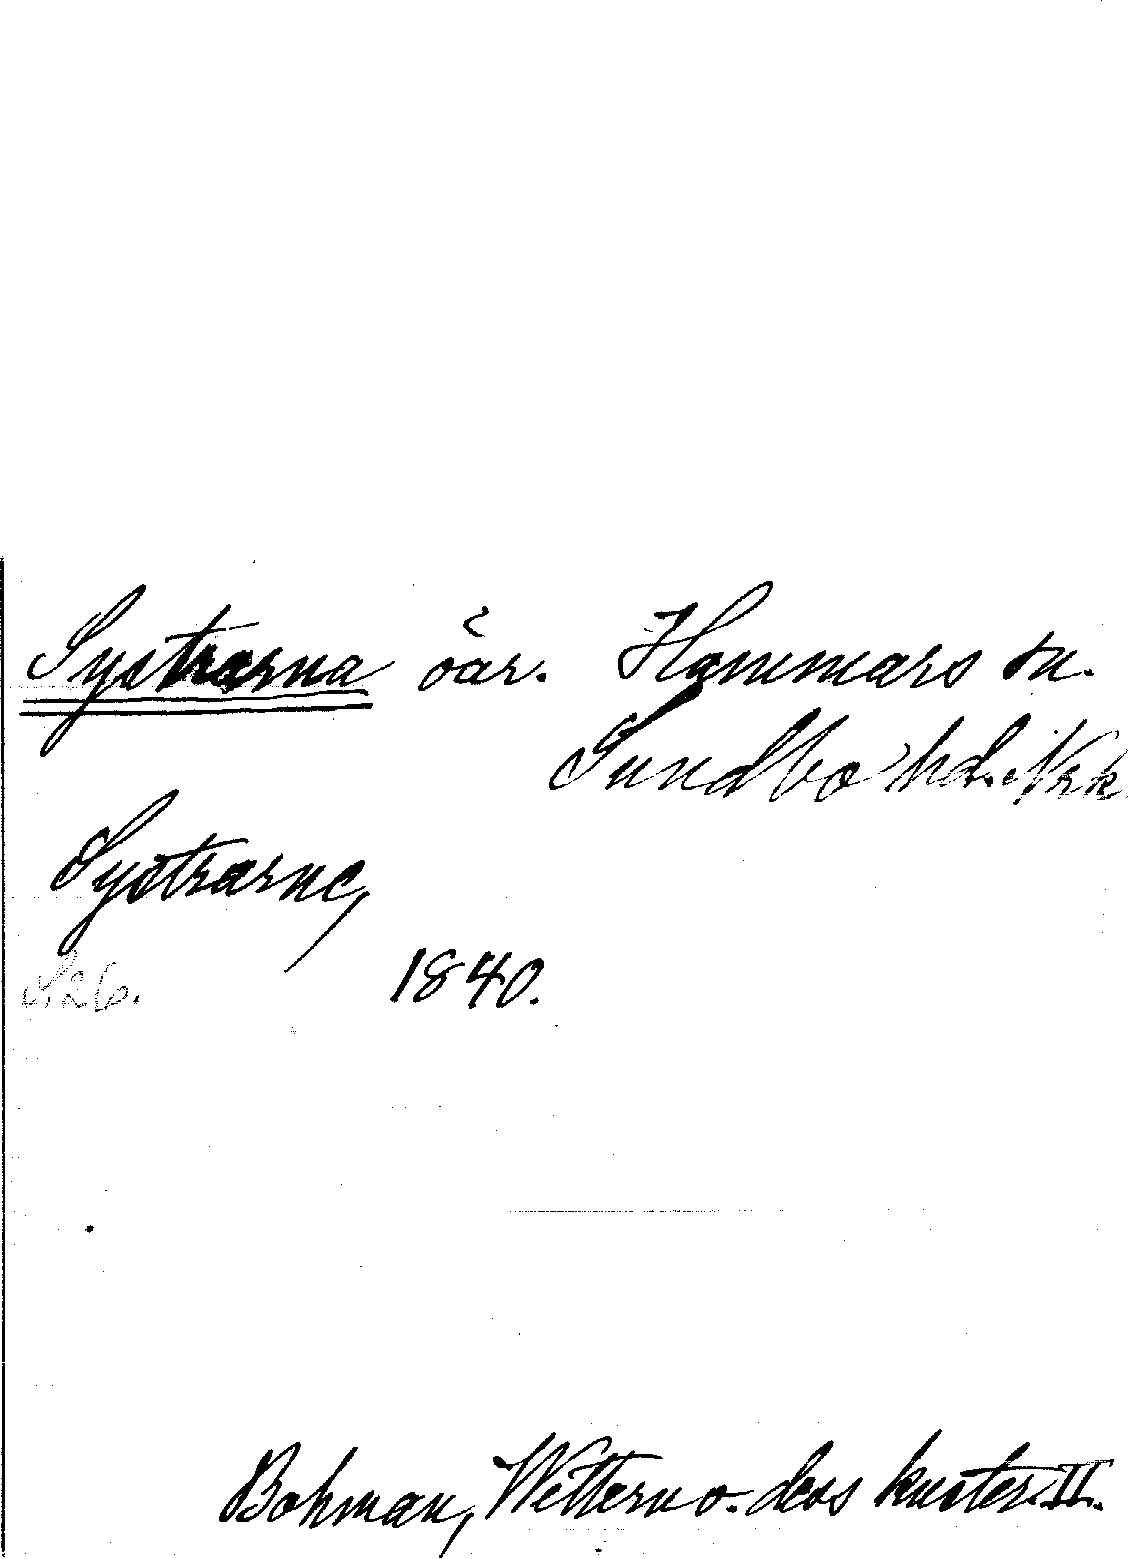 Systrarna öar. Hammars sn.
Sundbo hd. Nrk
Systrarne,
S. 26. 1840.
Bohman, Wettern o. dess kuster. II.